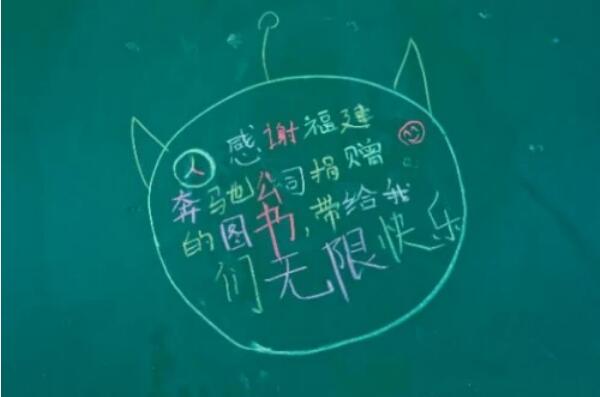 感谢福建
奔驰公司捐赠
的图书,带给我
们无限快乐